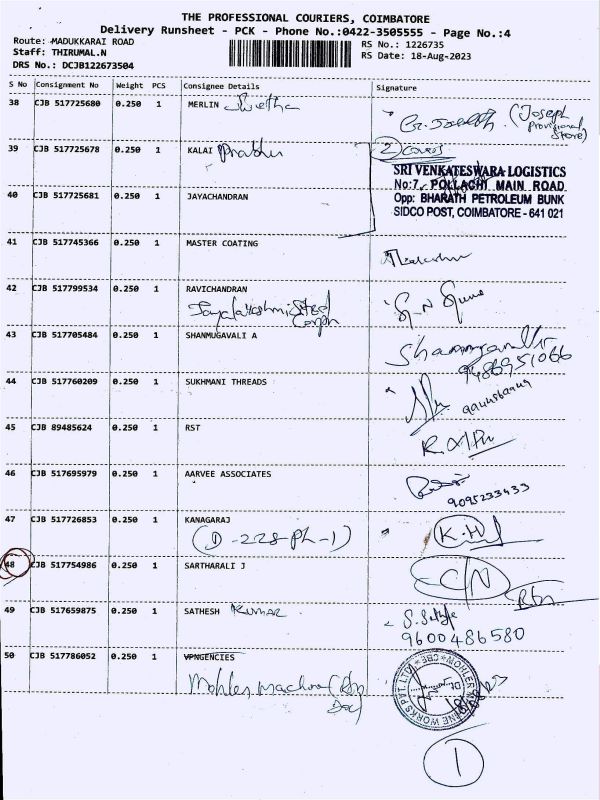 THE PROFESSIONAL COURIERS, COIMBATORE
Delivery Runsheet - PCK - Phone No.:0422-3505555 - Page No.:4
Route: MADUKKARAI ROAD
Staff: THIRUMAL.N
DRS No.: DCJB122673504
RS No.: 1226735
RS Date: 18-Aug-2023
S No Consignment No Weight PCS Consignee Details Signature
38 CJB 517725680 0.250 1 MERLIN Swetha
(Joseph Provisional Store)
39 CJB 517725678 0.250 1 KALAI Prabhu
2 Covers
SRI VENKATESWARA LOGISTICS
No:7, POLLACHI MAIN ROAD
Opp: BHARATH PETROLEUM BUNK
SIDCO POST, COIMBATORE - 641 021
40 CJB 517725681 0.250 1 JAYACHANDRAN
41 CJB 517745366 0.250 1 MASTER COATING
42 CJB 517799534 0.250 1 RAVICHANDRAN
43 CJB 517705484 0.250 1 SHANMUGAVALI A
9486951066
44 CJB 517760209 0.250 1 SUKHMANI THREADS
45 CJB 89485624 0.250 1 RST
46 CJB 517695979 0.250 1 AARVEE ASSOCIATES
9095233433
47 CJB 517726853 0.250 1 KANAGARAJ
(D-228-Ph-1)
48 CJB 517754986 0.250 1 SARTHARALI J
C/N
49 CJB 517659875 0.250 1 SATHESH KUMAR
9600486580
50 CJB 517786052 0.250 1 VPNGENCIES
1